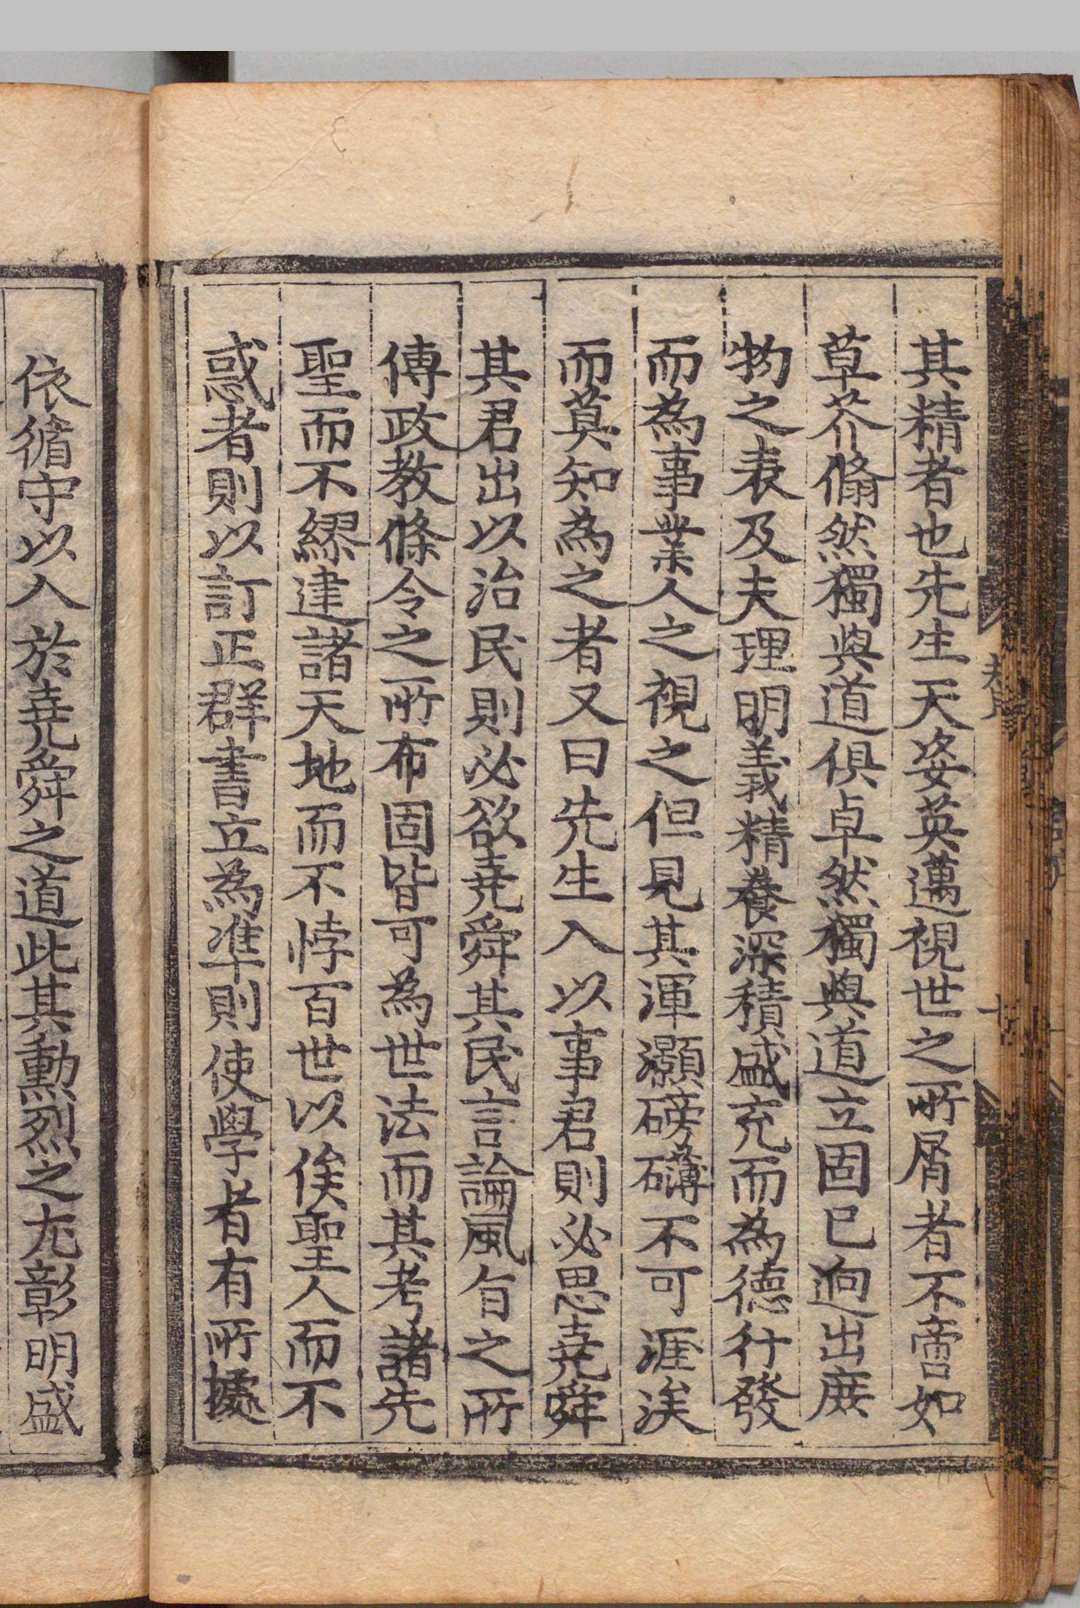 其精者也先生天姿英邁視世之所屑者不啻如
草芥翛然獨與道俱卓然獨與道立固已迥出庶
物之表及夫理明義精養深積盛充而為德行發
而為事業人之視之但見其渾灝磅礴不可涯涘
而莫知為之者又曰先生入以事君則必思堯舜
其君出以治民則必欲堯舜其民言論風旨之所
傳政教條令之所布固皆可為世法而其考諸先
聖而不繆建諸天地而不悖百世以俟聖人而不
惑者則以訂正群書立為準則使學者有所據
依循守以入於堯舜之道此其勳烈之尤彰明盛